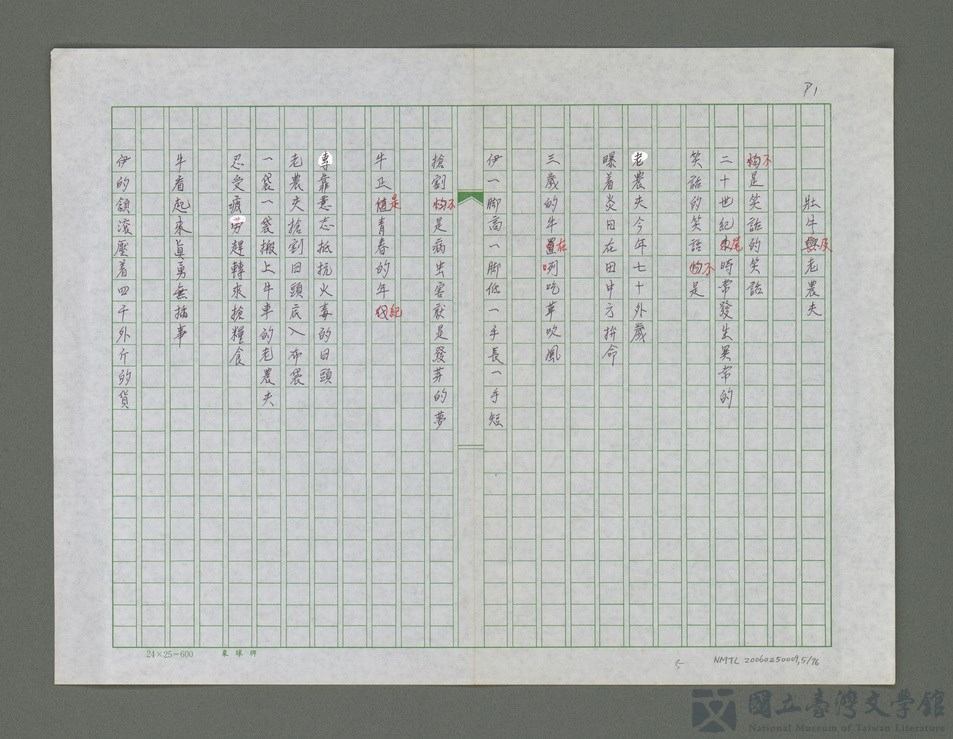 P1
壯牛與及老農夫
怐不是笑話的笑話
二十世紀末尾時常發生異常的
笑話的笑話怐不是
老農夫今年七十外歲
曝着炎日在田中方拚命
三歲的牛置在咧吃草吹風
伊一脚高一脚低一手長一手短
搶割怐不是病虫害就是發芽的夢
牛正值是青春的年紀
專靠意志抵抗火毒的日頭
老農夫搶割日頭底入布袋
一袋一袋搬上牛車的老農夫
忍受疲勞趕轉來搶糧食
牛看起來眞勇無揣事
伊的頷滾壓着四千外斤的貨
24×25=600
5
NMTL 20060250009,5/76
國立臺灣文學館
National Museum of Taiwan Literature